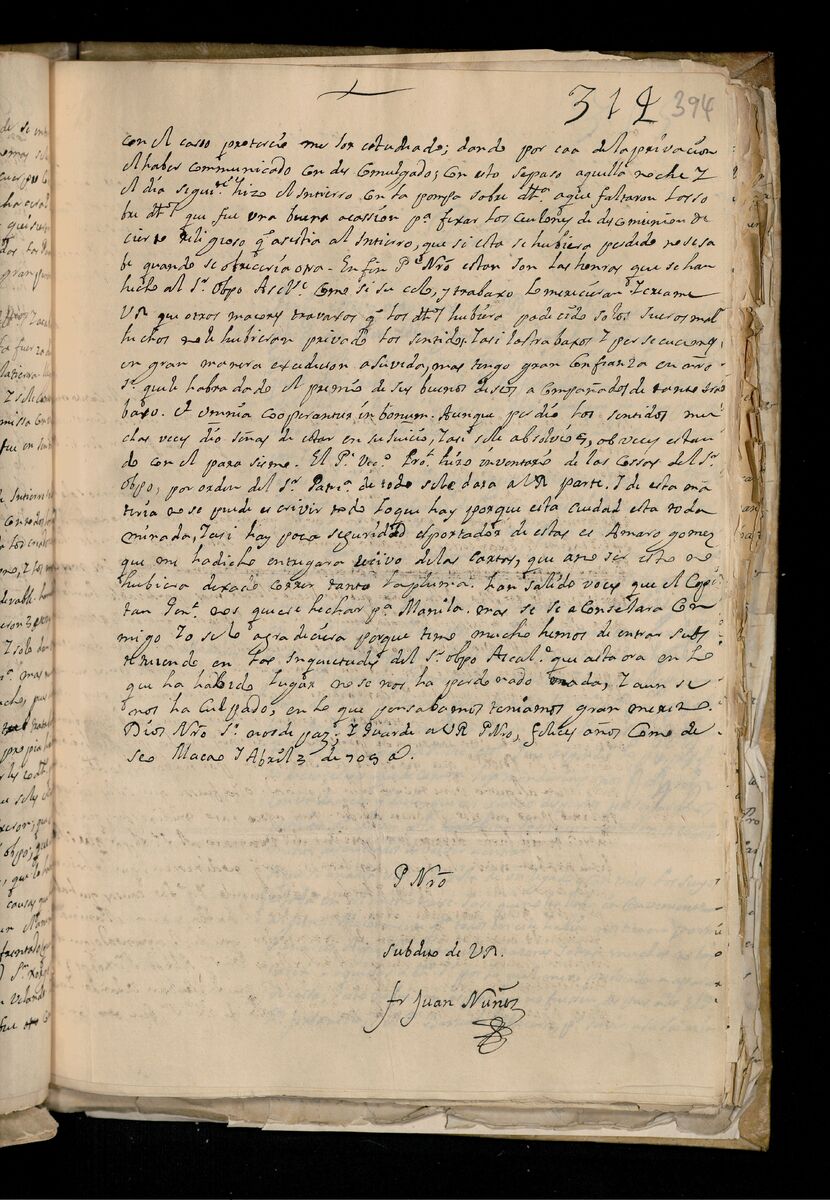 312 394
con el caso preterició me los estudiado; dando por caa de la privacion
el haber communicado con des Comulgados; con esto se paso aquella noche Y
el dia seguite hizo el Intierro con la pompa sobre dta a que faltaron los so
bre dts que fue una buena ocassion pa fixar los cedulones de descomunion de
cierto religioso q asistia al Intierro, que si esta se hubiera perdido no se sa
be quando se ofreceria otra - En fin Pe Nro estas son las honras que se han
hecho al Sr Obpo Como si su celo, y trabaxo lo mereciera Creame
VR que otros mayores travaxos q los dts hubiera padecido solos sueros mal
hechos no le hubieran privado los sentidos, Y asi los trabaxos Y persecuciones
en gran manera excedieron a su vida, mas tengo gran Confianza en nro
Sr que le habra dado el premio de sus buenos deseos a Compañados de tanto tra
baxo. et omnia cooperantur in bonum. Aunque perdio los sentidos mu
chas veces dio señas de estar en su juicio, Y asi se le absolvió ob veces estan
do con el parasismo. El Pe Vic Pro hizo inventario de las cossas del Sr
Obpo, por orden del Sr Patrca de todo se le dara a VR parte. Y de esta ma
teria no se puede escrivir todo lo que hay porque esta ciudad esta toda
minada, Y asi hay poca seguridad el portador de estas es Amaro gomez
que me ha dicho entregara recivo de las cartas, que a no ser esto no
hubiera dexado correr tanto la pluma. han salido voces que el Capi
tan Genl nos quiere hechar pa Manila. mas se se aConsejara Con
migo Yo se lo agradeciera porque temo mucho hemos de entrar
en las Inquietudes del Sr Obpo que asta ora en lo
que ha habido lugar no se nos ha perdonado nada, Y aun se
nos ha Culpado, en lo que pensabamos teniamos gran merito.
Dios Nro Sr nos de paz, Y Guarde a VR P Nro, felices años Como de
seo Macao Y Abril 3 de 705 a.
P Nro
Subdito de VR.
fr Juan Nuñez